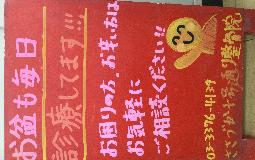 お盆も毎日
診療してます!!!
お困りの方、お辛い方は
お気軽に
ご相談ください!!
03-3376-4139